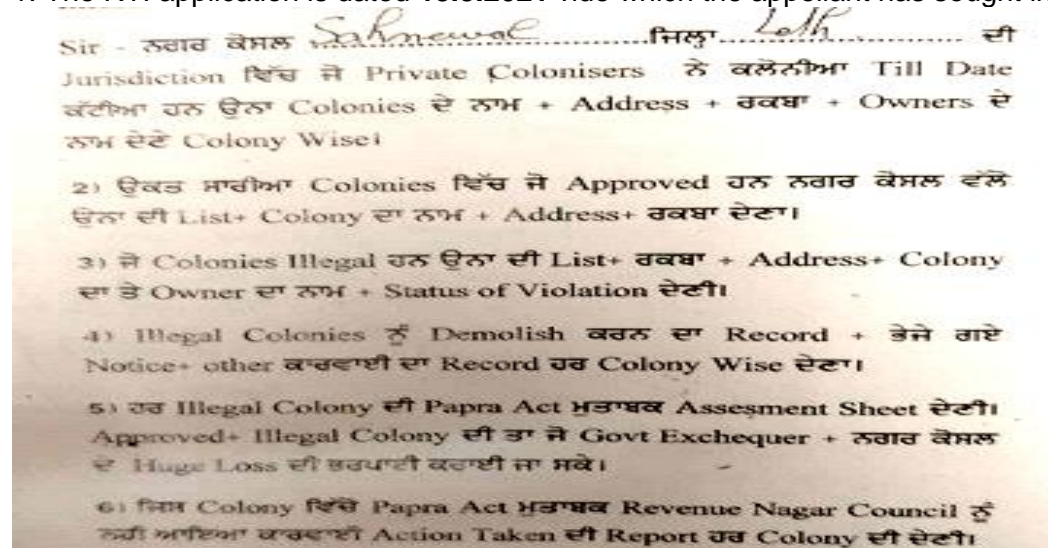 Sir - ਨਗਰ ਕੋਸਲ Sahnewal ਜਿਲ੍ਹਾ Ldh ਦੀ
Jurisdiction ਵਿੱਚ ਜੋ Private Colonisers ਨੇ ਕਲੋਨੀਆ Till Date
ਕੱਟੀਆ ਹਨ ਉਨਾ Colonies ਦੇ ਨਾਮ + Address + ਰਕਬਾ + Owners ਦੇ
ਨਾਮ ਦੇਣੇ Colony Wise।
2) ਉਕਤ ਸਾਰੀਆ Colonies ਵਿੱਚ ਜੋ Approved ਹਨ ਨਗਰ ਕੋਸਲ ਵੱਲੋ
ਉਨਾ ਦੀ List+ Colony ਦਾ ਨਾਮ + Address+ ਰਕਬਾ ਦੇਣਾ।
3) ਜੋ Colonies Illegal ਹਨ ਉਨਾ ਦੀ List+ ਰਕਬਾ + Address+ Colony
ਦਾ ਤੇ Owner ਦਾ ਨਾਮ + Status of Violation ਦੇਣੀ।
4) Illegal Colonies ਨੂੰ Demolish ਕਰਨ ਦਾ Record + ਭੇਜੇ ਗਏ
Notice+ other ਕਾਰਵਾਈ ਦਾ Record ਹਰ Colony Wise ਦੇਣਾ।
5) ਹਰ Illegal Colony ਦੀ Papra Act ਮੁਤਾਬਕ Assesment Sheet ਦੇਣੀ।
Approved+ Illegal Colony ਦੀ ਤਾ ਜੋ Govt Exchequer + ਨਗਰ ਕੋਸਲ
ਦੇ Huge Loss ਦੀ ਭਰਪਾਈ ਕਰਾਈ ਜਾ ਸਕੇ।
6) ਜਿਸ Colony ਵਿੱਚੋ Papra Act ਮੁਤਾਬਕ Revenue Nagar Council ਨੂੰ
ਨਹੀ ਆਇਆ ਕਾਰਵਾਈ Action Taken ਦੀ Report ਹਰ Colony ਦੀ ਦੇਣੀ।